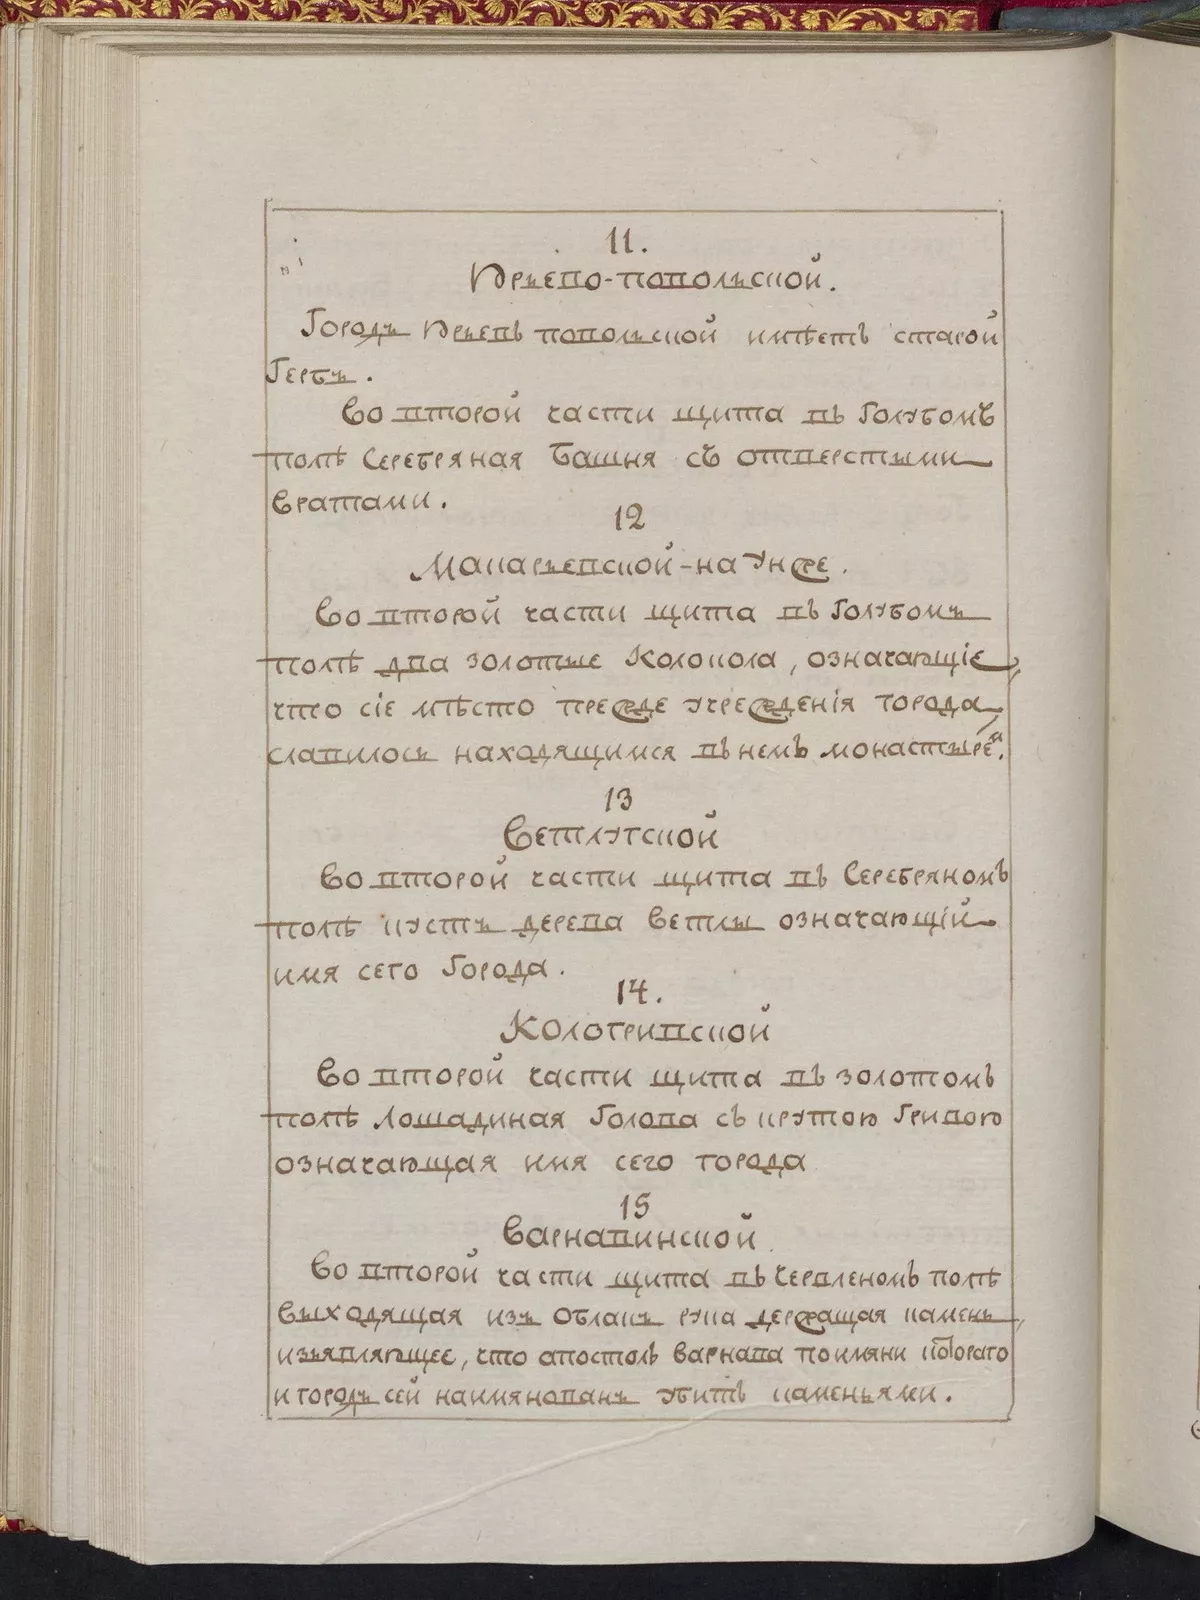 11.
Юрьево-повольской.
Городъ Юрьевъ повольской имѣетъ старой
Гербъ.
Во второй части щита въ Голубомъ
полѣ Серебряная Башня съ отверстыми
вратами.
12
Макарьевской-на Унже.
Во второй части щита въ Голубомъ
полѣ два золотые Колокола, означающіе,
что сіе мѣсто прежде учрежденія города
славилось находящимся въ немъ монастыремъ.
13
Ветлугской
Во второй части щита въ Серебряномъ
полѣ кустъ дерева Ветлы означающій
имя сего Города.
14.
Кологривской
Во второй части щита въ золотомъ
полѣ Лошадиная Голова съ крутою Гривою
означающая имя сего города
15
Варнавинской
Во второй части щита въ Червленомъ полѣ
выходящая изъ Облакъ рука держащая камень,
изъявляющее, что апостолъ Варнава по имяни котораго
и городъ сей наимянованъ убитъ каменьями.